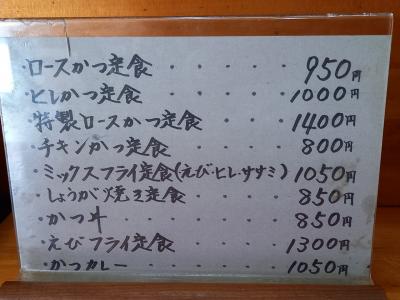 ・ロースかつ定食・・・・・950円
・ヒレかつ定食・・・・・1000円
・特製ロースかつ定食・・・・1400円
・チキンかつ定食・・・・・800円
・ミックスフライ定食(えび・ヒレ・ササミ)1050円
・しょうが焼き定食・・・・850円
・かつ丼・・・・・・・850円
・えびフライ定食・・・・1300円
・かつカレー・・・・・・1050円